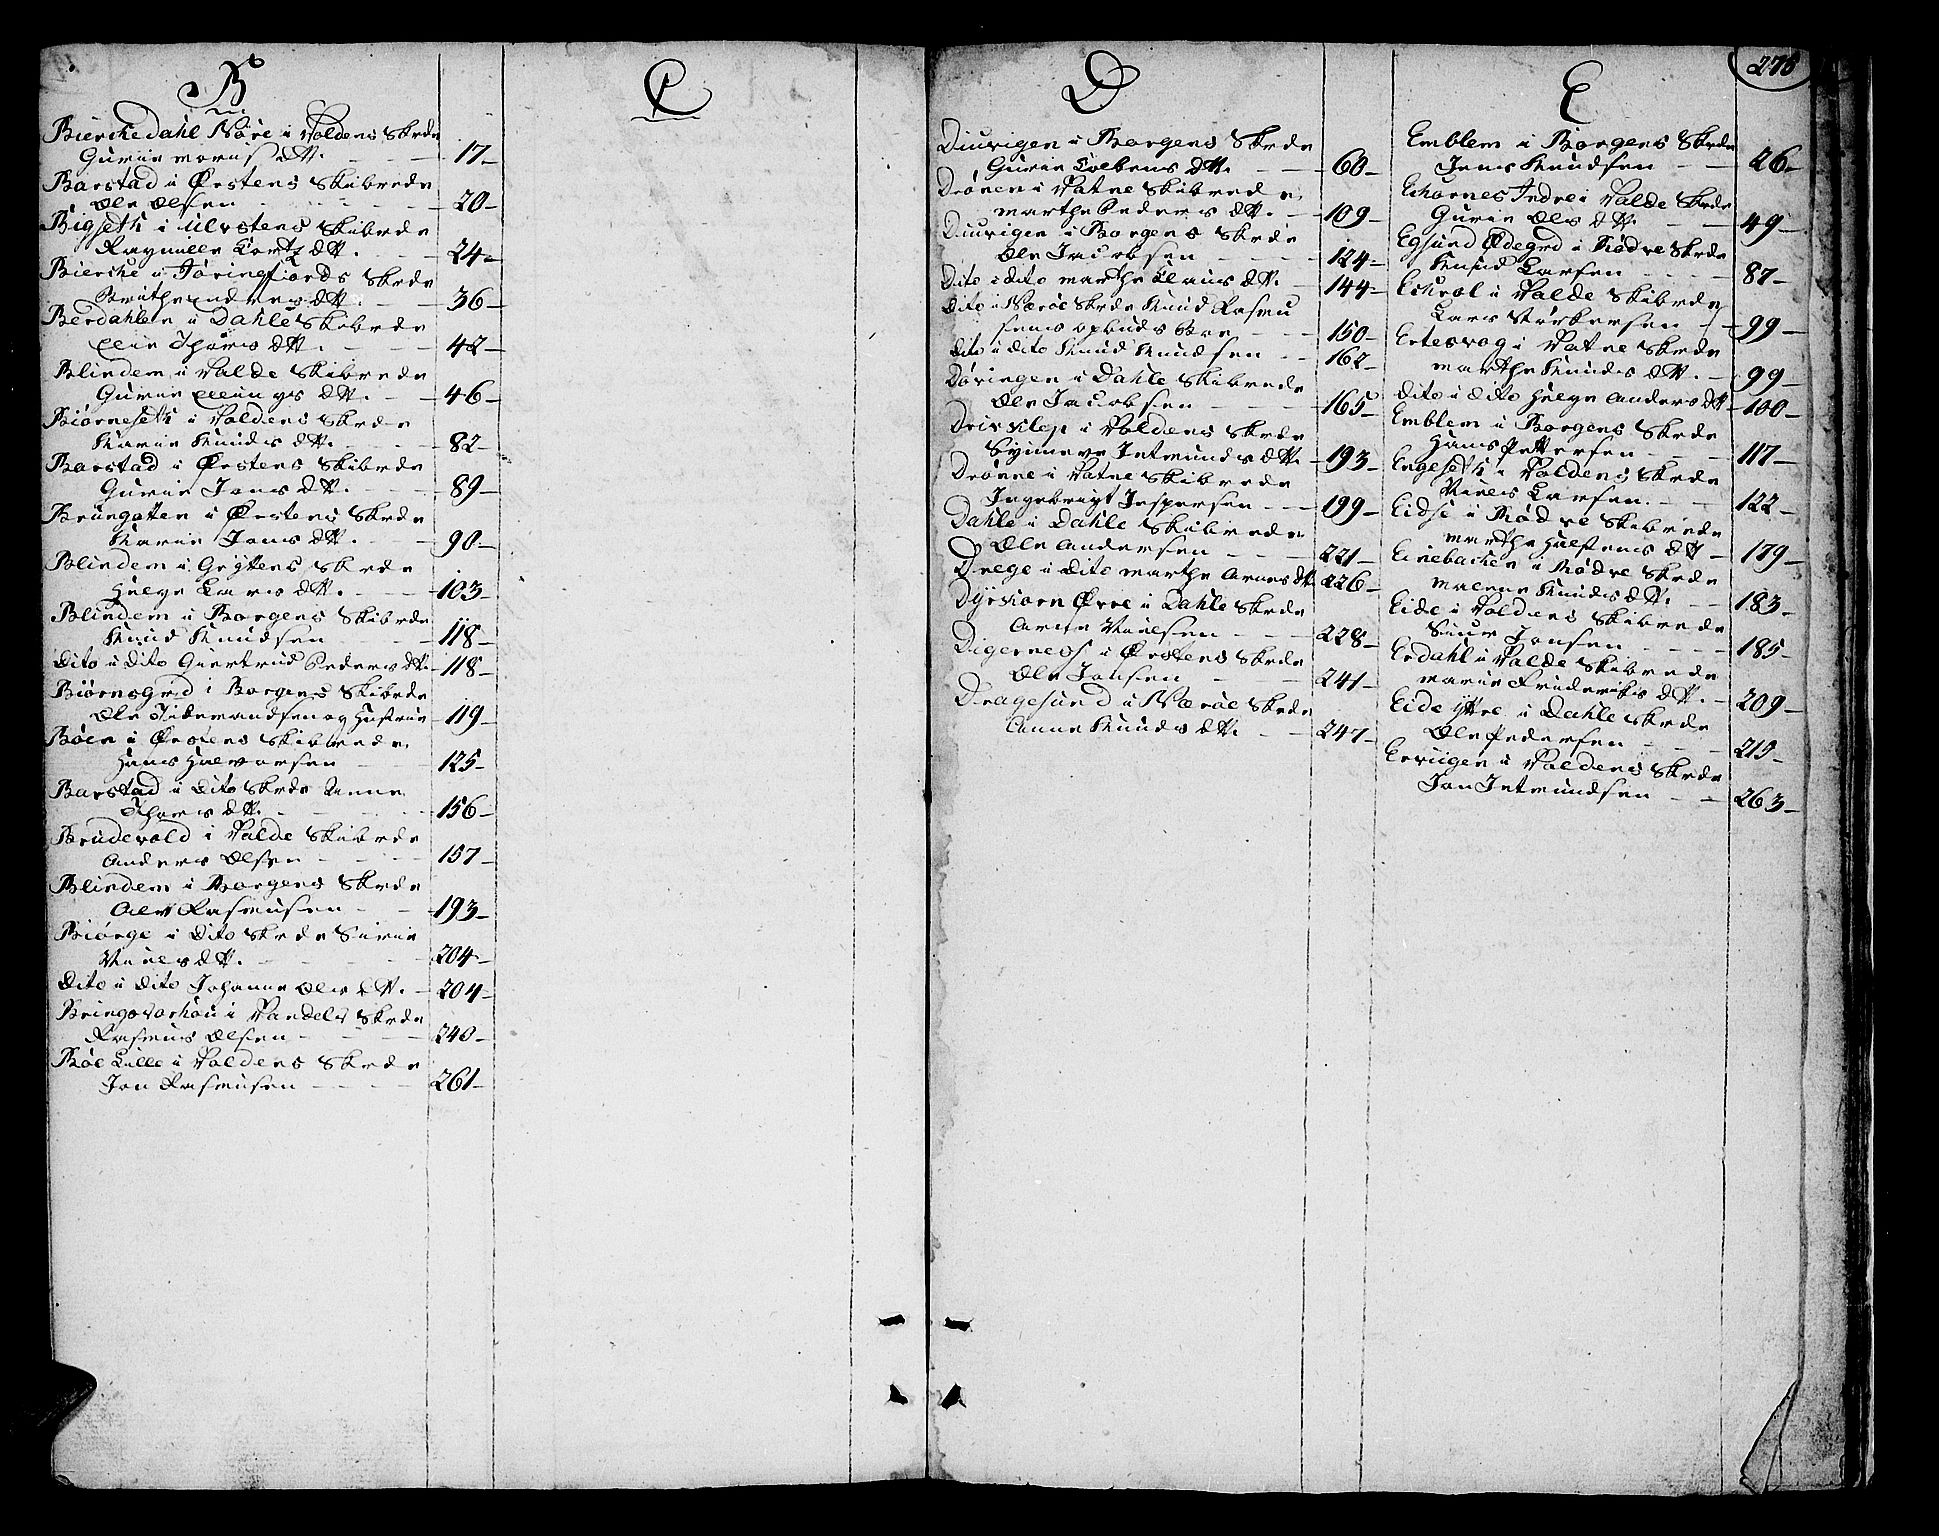 B
Bierchedahl Nøre i Voldens Skrde
Gurie Monsdtt. 17
Barstad i Ørstens Skibrede
Ole Olsen 20
Bigseth i Ulvstens Skibrede
Ragnille Lortzdtt. 24
Bierche i Jøringfiords Skrde
Brithe Endresdtt. 36
Berdahlen i Dahle Skibrede
Elie Thoresdtt. 42
Blindem i Valde Skibrede
Gurie Ellingsdtt. 46
Biørneseth i Voldens Skrde
Marie Knudsdtt. 82
Barstad i Ørstens Skibrede
Gurie Jonsdtt. 89
Brungotten i Ørstens Skrde
Marie Jonsdtt. 90
Blindem i Gryttens Skrde
Helge Larsdtt. 103
Blindem i Borgens Skibrde
Knud Knudsen 118
Dito i Dito Giertrud Pedersdtt. 118
Biørnsgrd i Borgens Skibrde
Ole Tidemandsen og Hustrue 119
Böen i Ørstens Skibrede
Hans Halvorsen 125
Barstad i Dito Skrde Anne
Thoresdtt. 156
Brudevold i Valde Skibrede
Anders Olsen 157
Blindem i Borgens Skrde
Ole Rasmusen 193
Biørge i Dito Skrde Sirrie
Nielsdtt. 204
Dito i Dito Johanne Olsdtt. 204
Bringsvorhou i Vandels Skrde
Rasmus Olsen 240
Böe Lille i Voldens Skrde
Jon Rasmusen 261
C
D
Diurigen i Borgens Skrde
Gurie Colbensdtt. 60
Drönen i Vatne Skibrede
Marthe Pedersdtt. 109
Diurigen i Borgens Skrde
Ole Jacobsen 124
Dito i dito Marthe Clausdtt. 144
Dito i Nærøe Skrde Knud Rasmu
sens opbuds Boe 150
Dito i dito Knud Knudsen 162
Døringen i Dahle Skibrede
Ole Jacobsen 165
Drivslep i Voldens Skrde
Synneve Jetmundsdtt. 193
Drönne i Vatne Skibrede
Ingebrigt Jespersen 199
Dahle i Dahle Skibrede
Ole Andersen 221
Drege i Dito Marthe Arnesdtt. 226
Dyrkorn Øvre i Dahle Skrde
Arne Nielsen 228
Digerness i Ørstens Skrde
Ole Jonsen 241
Dragesund i Nærøe Skrde
Anne Knudsdtt. 247
E
278
Emblem i Borgens Skrde
Jens Knudsen 26
Ekornes Indre i Valde Skrde
Gurie Olsdtt. 49
Egsund Ødegrd i Rødve Skrde
Knud Larsen 87
Ekrol i Valde Skibrede
Lars Størkersen 99
Ertesvog i Vatne Skrde
Marthe Knudsdtt. 99
Dito i Dito Helge Andersdtt. 100
Emblem i Borgens Skrde
Hans Pettersen 117
Engeseth i Voldens Skrde
Niels Larsen 122
Eidse i Rødve Skibrede
Marthe Halstensdtt. 179
Einebacken i Rødve Skrde
Malene Knudsdtt. 183
Eide i Voldens Skibrede
Siur Jonsen 185
Erdahl i Valde Skibrede
Marie Friderichsdtt. 209
Eide Ytre i Dahle Skrde
Ole Pedersen 215
Erviigen i Voldens Skrde
Jon Jetmundsen 263